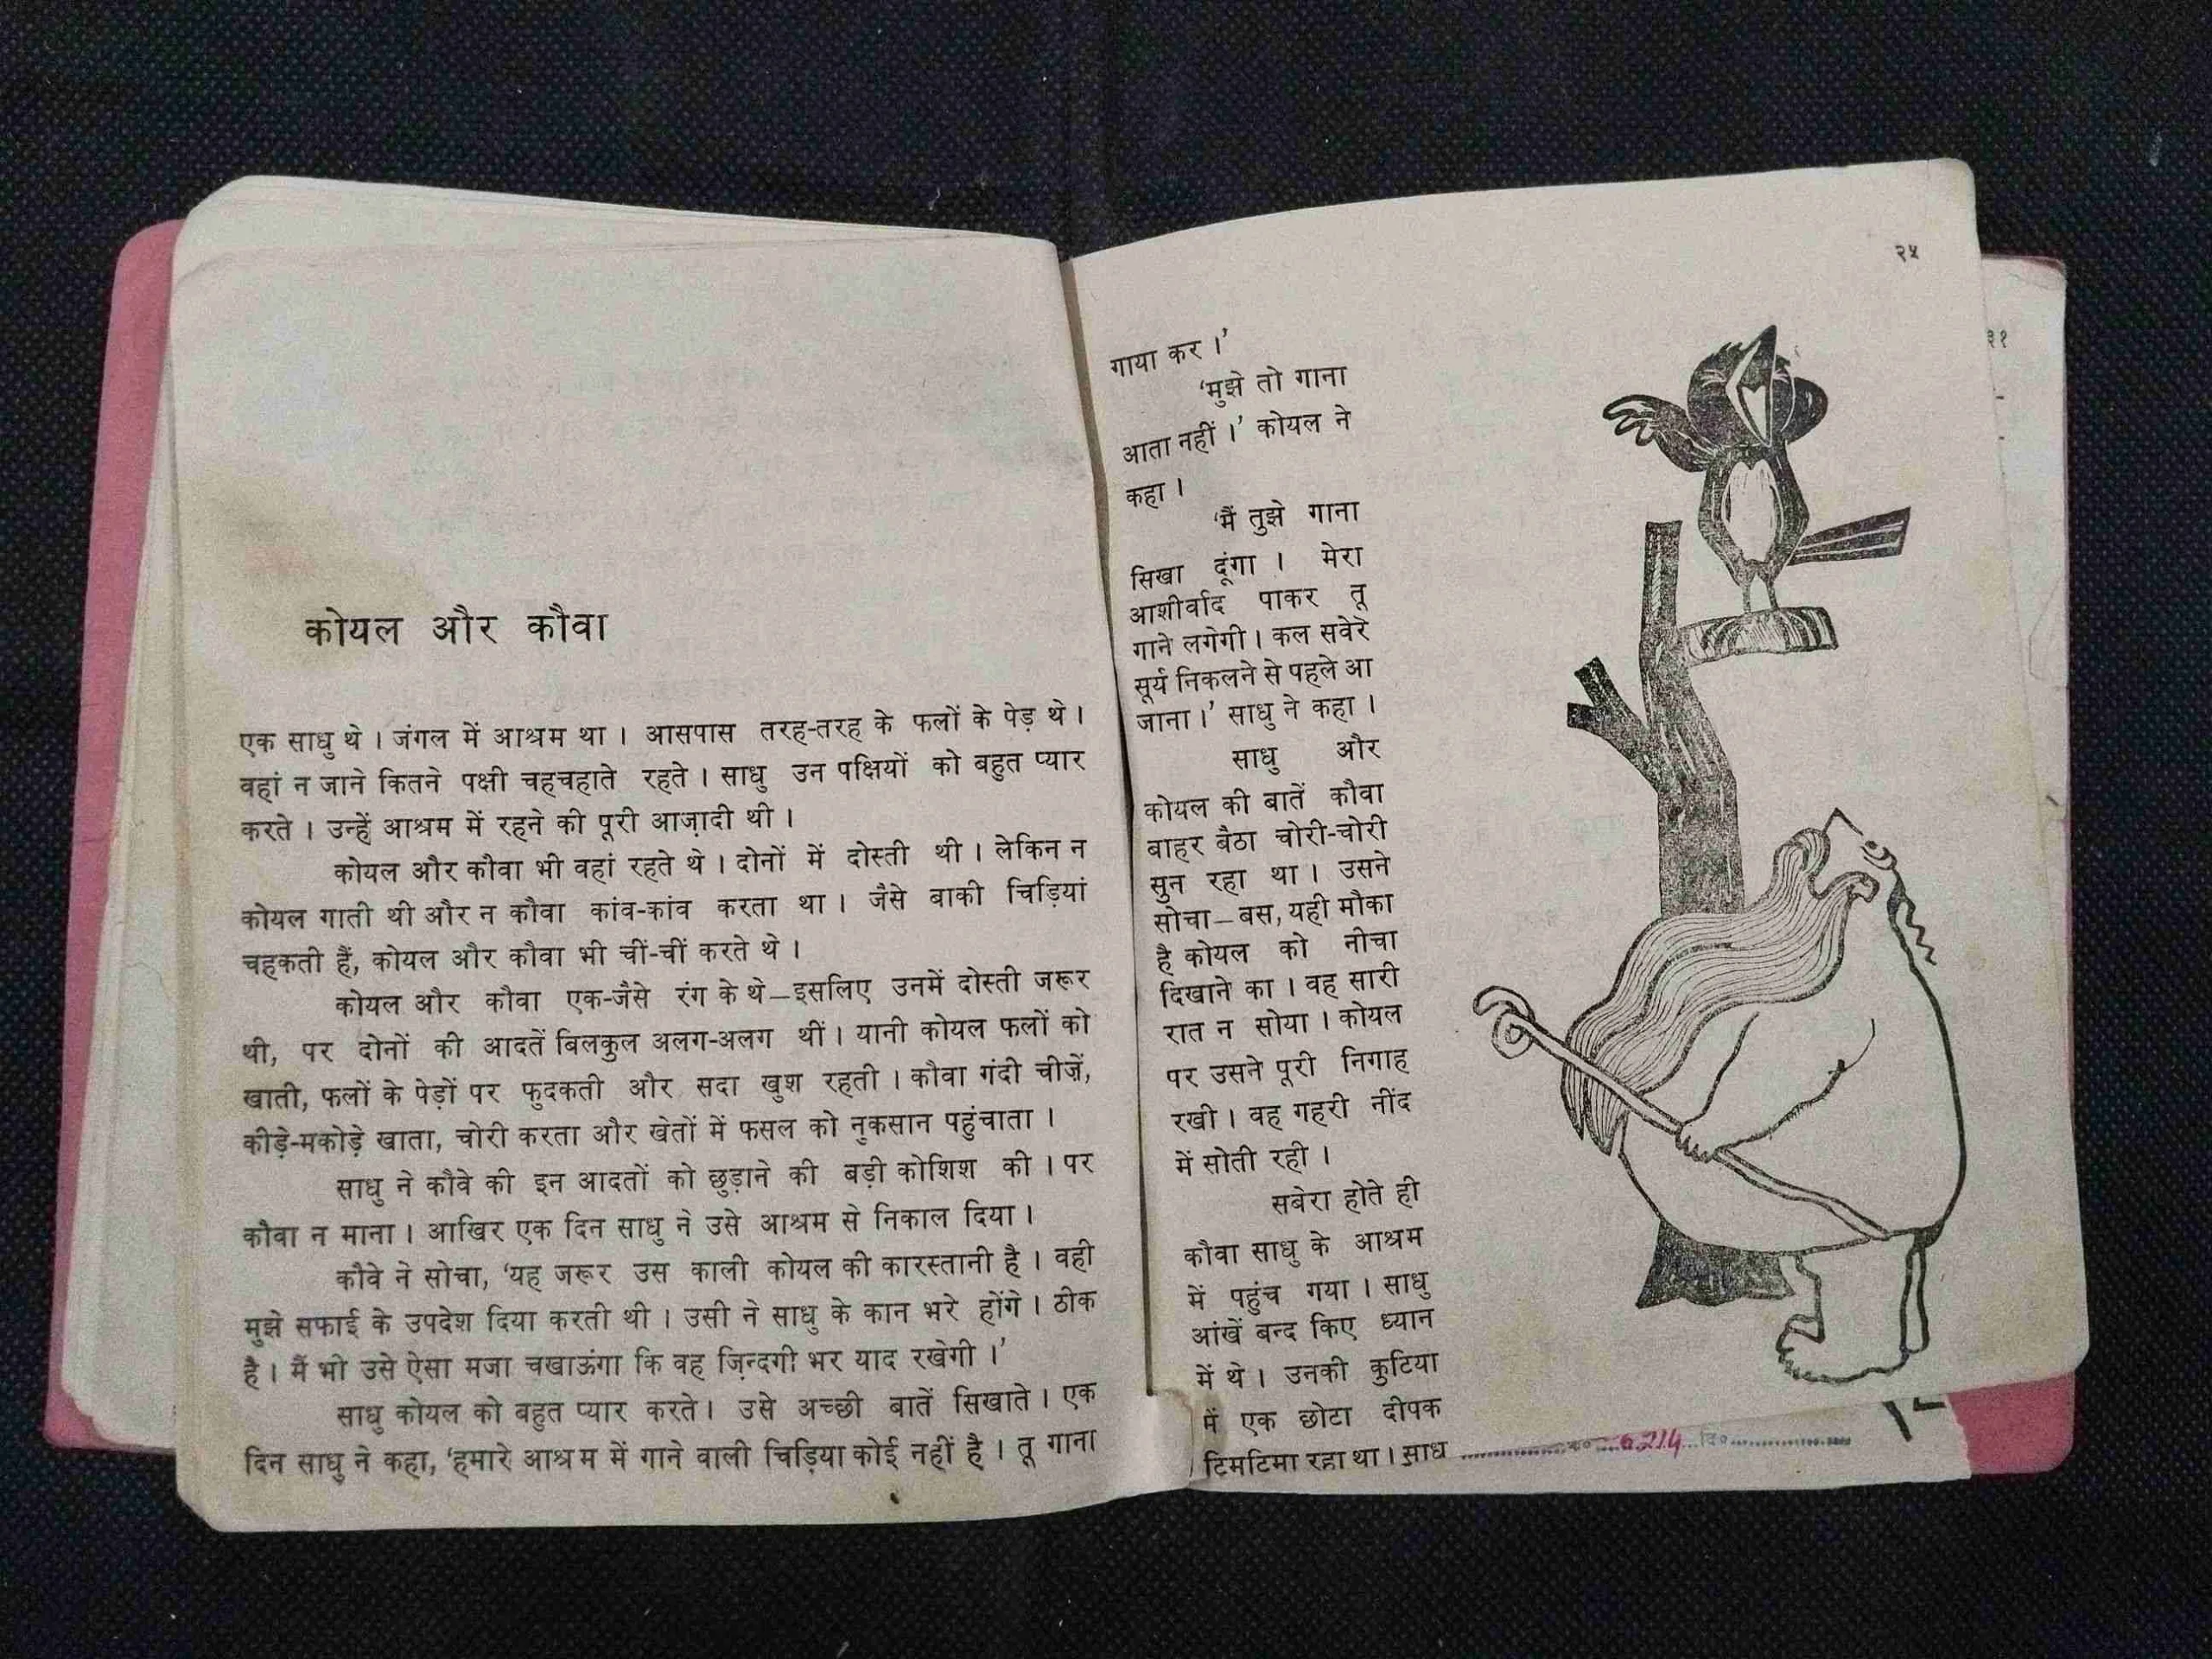 कोयल और कौवा
एक साधु थे । जंगल में आश्रम था । आसपास तरह-तरह के फलों के पेड़ थे ।
वहां न जाने कितने पक्षी चहचहाते रहते । साधु उन पक्षियों को बहुत प्यार
करते । उन्हें आश्रम में रहने की पूरी आज़ादी थी ।
कोयल और कौवा भी वहां रहते थे । दोनों में दोस्ती थी । लेकिन न
कोयल गाती थी और न कौवा कांव-कांव करता था । जैसे बाकी चिड़ियां
चहकती हैं, कोयल और कौवा भी चीं-चीं करते थे ।
कोयल और कौवा एक-जैसे रंग के थे—इसलिए उनमें दोस्ती जरूर
थी, पर दोनों की आदतें बिलकुल अलग-अलग थीं । यानी कोयल फलों को
खाती, फलों के पेड़ों पर फुदकती और सदा खुश रहती । कौवा गंदी चीज़ें,
कीड़े-मकोड़े खाता, चोरी करता और खेतों में फसल को नुकसान पहुंचाता ।
साधु ने कौवे की इन आदतों को छुड़ाने की बड़ी कोशिश की । पर
कौवा न माना । आखिर एक दिन साधु ने उसे आश्रम से निकाल दिया ।
कौवे ने सोचा, ‘यह जरूर उस काली कोयल की कारस्तानी है । वही
मुझे सफाई के उपदेश दिया करती थी । उसी ने साधु के कान भरे होंगे । ठीक
है । मैं भी उसे ऐसा मजा चखाऊंगा कि वह ज़िन्दगी भर याद रखेगी ।’
साधु कोयल को बहुत प्यार करते । उसे अच्छी बातें सिखाते । एक
दिन साधु ने कहा, ‘हमारे आश्रम में गाने वाली चिड़िया कोई नहीं है । तू गाना
२५
गाया कर ।’
‘मुझे तो गाना
आता नहीं ।’ कोयल ने
कहा ।
‘मैं तुझे गाना
सिखा दूंगा । मेरा
आशीर्वाद पाकर तू
गाने लगेगी । कल सवेरे
सूर्य निकलने से पहले आ
जाना ।’ साधु ने कहा ।
साधु और
कोयल की बातें कौवा
बाहर बैठा चोरी-चोरी
सुन रहा था । उसने
सोचा—बस, यही मौका
है कोयल को नीचा
दिखाने का । वह सारी
रात न सोया । कोयल
पर उसने पूरी निगाह
रखी । वह गहरी नींद
में सोती रही ।
सबेरा होते ही
कौवा साधु के आश्रम
में पहुंच गया । साधु
आंखें बन्द किए ध्यान
में थे । उनकी कुटिया
में एक छोटा दीपक
टिमटिमा रहा था । साधु
6214 दि०
३१